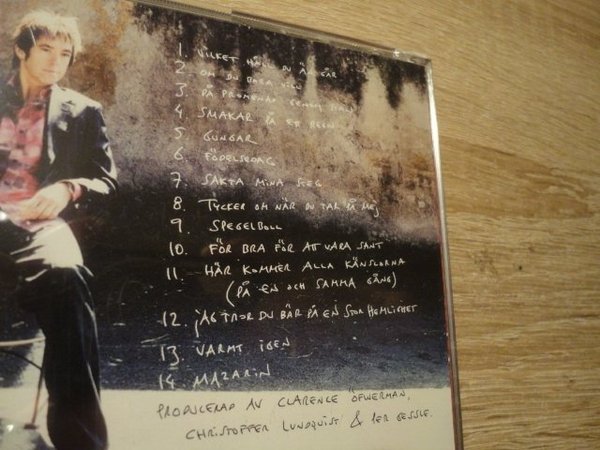 1. VILKET HÅLL DU ÄN GÅR
2 OM DU BARA VILL
3 PÅ PROMENAD GENOM STAN
4 SMAKAR PÅ ETT REGN
5 GUNGAR
6 FÖDELSEDAG
7 SAKTA MINA STEG
8 TYCKER OM NÄR DU TAR PÅ MEJ
9 SPEGELBOLL
10. FÖR BRA FÖR ATT VARA SANT
11 HÄR KOMMER ALLA KÄNSLORNA
(PÅ EN OCH SAMMA GÅNG)
12. JAG TROR DU BÄR PÅ EN STOR HEMLIGHET
13. VARMT IGEN
14. MAZARIN
PRODUCERAD AV CLARENCE ÖFWERMAN,
CHRISTOFFER LUNDQUIST & PER GESSLE.